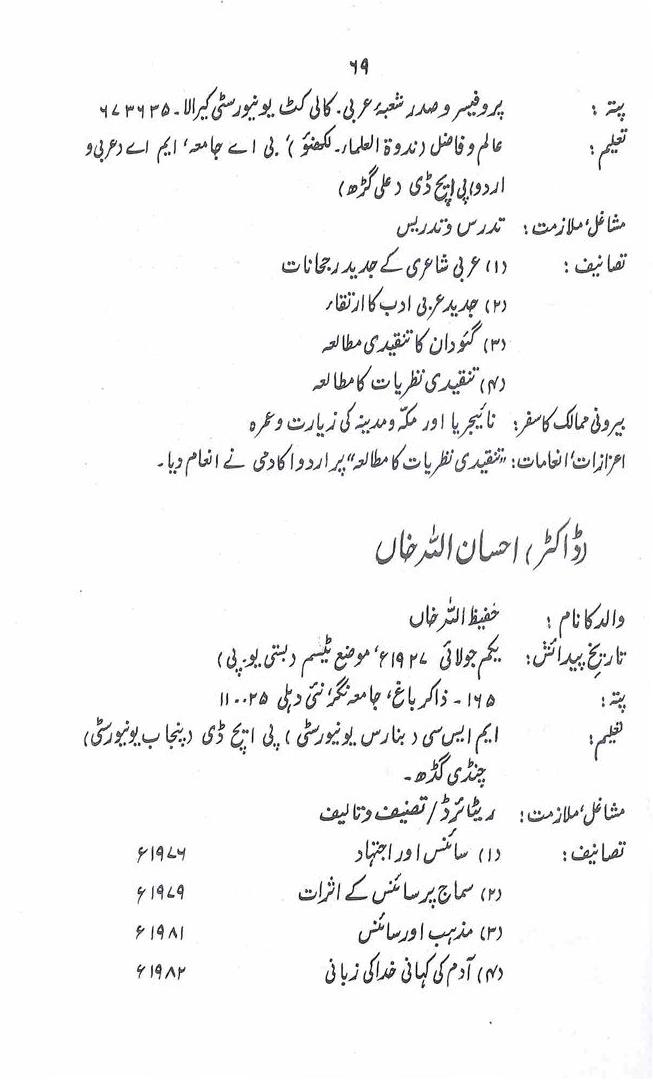 ۶۹
پتہ : پروفیسر و صدر شعبۂ عربی۔ کالی کٹ یونیورسٹی کیرالا۔ ۶۷۳۶۳۵
تعلیم : عالم و فاضل (ندوۃ العلماء۔ لکھنؤ)، بی اے جامعہ، ایم اے (عربی و
اردو) پی ایچ ڈی (علی گڑھ)
مشاغل، ملازمت : تدرس و تدریس
تصانیف : (۱) عربی شاعری کے جدید رجحانات
(۲) جدید عربی ادب کا ارتقاء
(۳) گئودان کا تنقیدی مطالعہ
(۴) تنقیدی نظریات کا مطالعہ
بیرونی ممالک کا سفر : نائیجریا اور مکّہ و مدینہ کی زیارت و عمرہ
اعزازات، انعامات : "تنقیدی نظریات کا مطالعہ" پر اردو اکادمی نے انعام دیا۔
(ڈاکٹر) احسان اللہ خاں
والد کا نام : حفیظ اللہ خاں
تاریخ پیدائش : یکم جولائی ۱۹۲۷ء، موضع ٹیسم (بستی یو۔پی)
پتہ : ۱۶۵ ۔ ذاکر باغ، جامعہ نگر، نئی دہلی ۱۱۰۰۲۵
تعلیم : ایم ایس سی (بنارس یونیورسٹی) پی ایچ ڈی (پنجاب یونیورسٹی)
چنڈی گڈھ۔
مشاغل، ملازمت : ریٹائرڈ / تصنیف و تالیف
تصانیف : (۱) سائنس اور اجتہاد ۱۹۷۶ء
(۲) سماج پر سائنس کے اثرات ۱۹۷۹ء
(۳) مذہب اور سائنس ۱۹۸۱ء
(۴) آدم کی کہانی خدا کی زبانی ۱۹۸۲ء